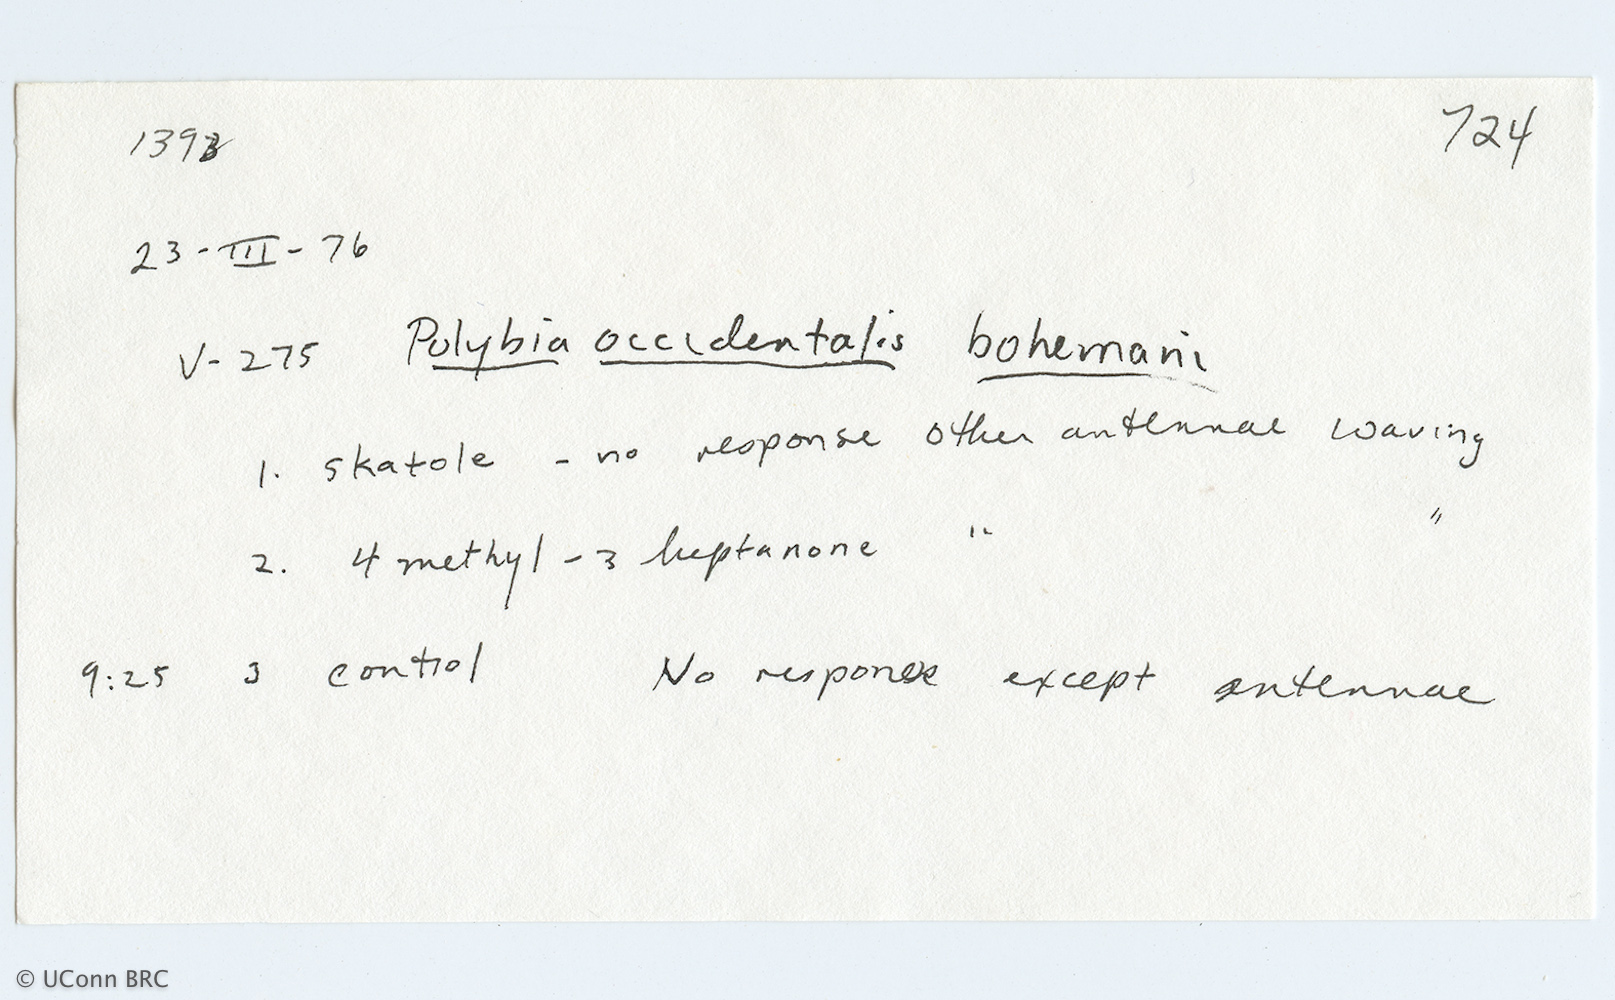 724
23-III-76
V-275 Polybia occidentalis bohemani
1. skatole - no response other antennae waving
2. 4 methyl-3 heptanone " "
9:25 3 control No response except antennae
© UConn BRC